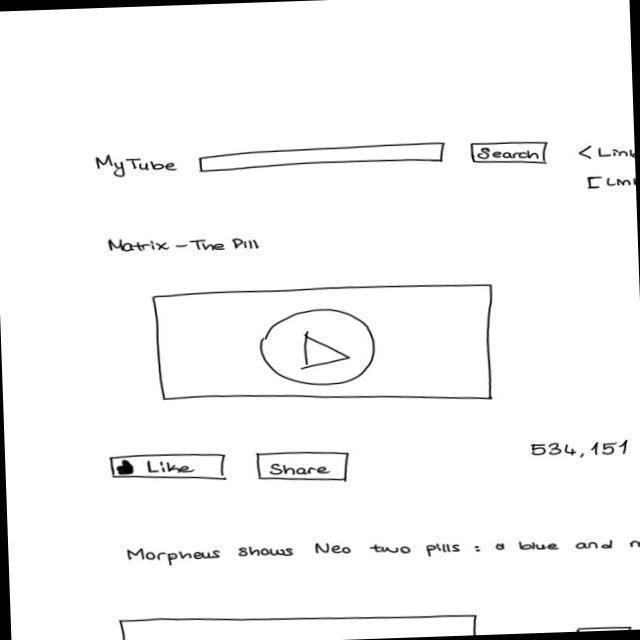 MyTube Search < Link
[ Link
Matrix - The Pill
Like Share 534,151
Morpheus shows Neo two pills : a blue and